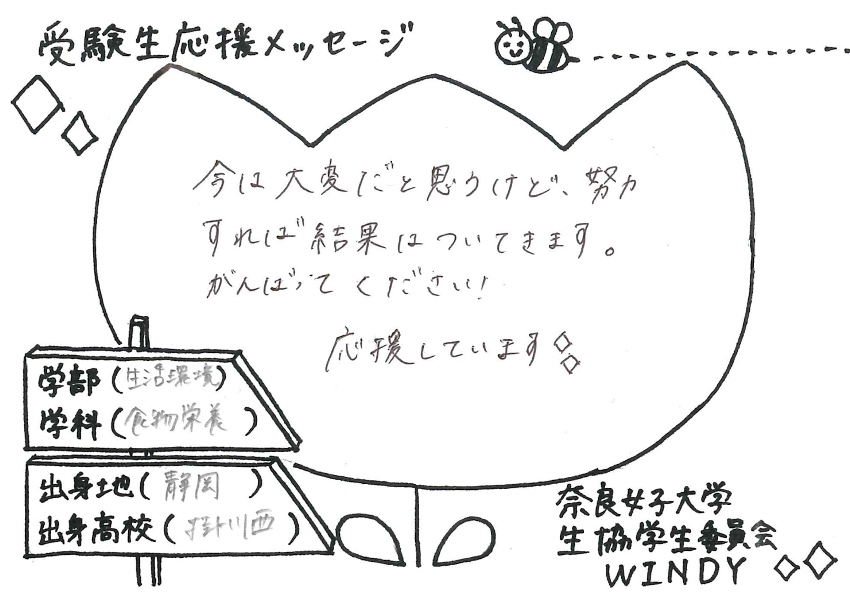 受験生応援メッセージ
今は大変だと思うけど、努力
すれば結果はついてきます。
がんばってください!
応援しています
学部(生活環境)
学科(食物栄養)
出身地(静岡)
出身高校(掛川西)
奈良女子大学
生協学生委員会
WINDY